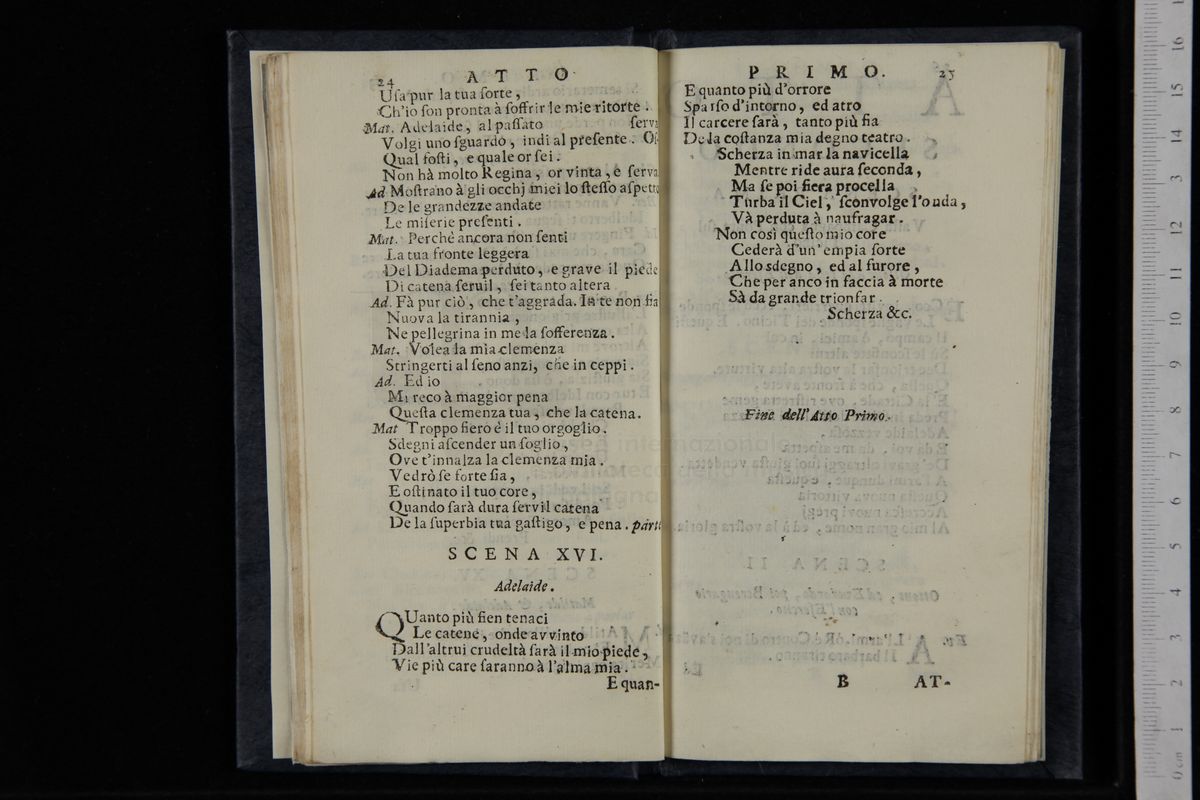 24 ATTO
Uſa pur la tua ſorte,
Ch'io ſon pronta à ſoffrir le mie ritorte.
Mat. Adelaide, al paſſato
Volgi uno ſguardo, indi al preſente.
Qual foſti, e quale or ſei.
Non hà molto Regina, or vinta, è ſerva
Ad Moſtrano à gli occhj miei lo ſteſſo aſpetto
De le grandezze andate
Le miſerie preſenti.
Mat. Perché ancora non ſenti
La tua fronte leggera
Del Diadema perduto, e grave il piede
Di catena ſeruil, ſei tanto altera
Ad. Fà pur ciò, che t'aggrada. In te non ſia
Nuova la tirannia,
Ne pellegrina in me la ſofferenza.
Mat. Volea la mia clemenza
Stringerti al ſeno anzi, che in ceppi.
Ad. Ed io
Mi reco à maggior pena
Queſta clemenza tua, che la catena.
Mat Troppo fiero é il tuo orgoglio.
Sdegni aſcender un ſoglio,
Ove t'innalza la clemenza mia.
Vedrò ſe forte ſia,
E oſtinato il tuo core,
Quando ſarà dura ſervil catena
De la ſuperbia tua gaſtigo, e pena. parte
SCENA XVI.
Adelaide.
QUanto più ſien tenaci
Le catene, onde avvinto
Dall'altrui crudeltà ſarà il mio piede,
Vie più care ſaranno à l'alma mia.
E quan-
PRIMO. 25
E quanto più d'orrore
Sparſo d'intorno, ed atro
Il carcere ſarà, tanto più fia
De la coſtanza mia degno teatro.
Scherza in mar la navicella
Mentre ride aura ſeconda,
Ma ſe poi fiera procella
Turba il Ciel, ſconvolge l'onda,
Và perduta à naufragar.
Non così queſto mio core
Cederà d'un' empia ſorte
Allo sdegno, ed al furore,
Che per anco in faccia à morte
Sà da grande trionfar.
Scherza &c.
Fine dell'Atto Primo.
B AT-